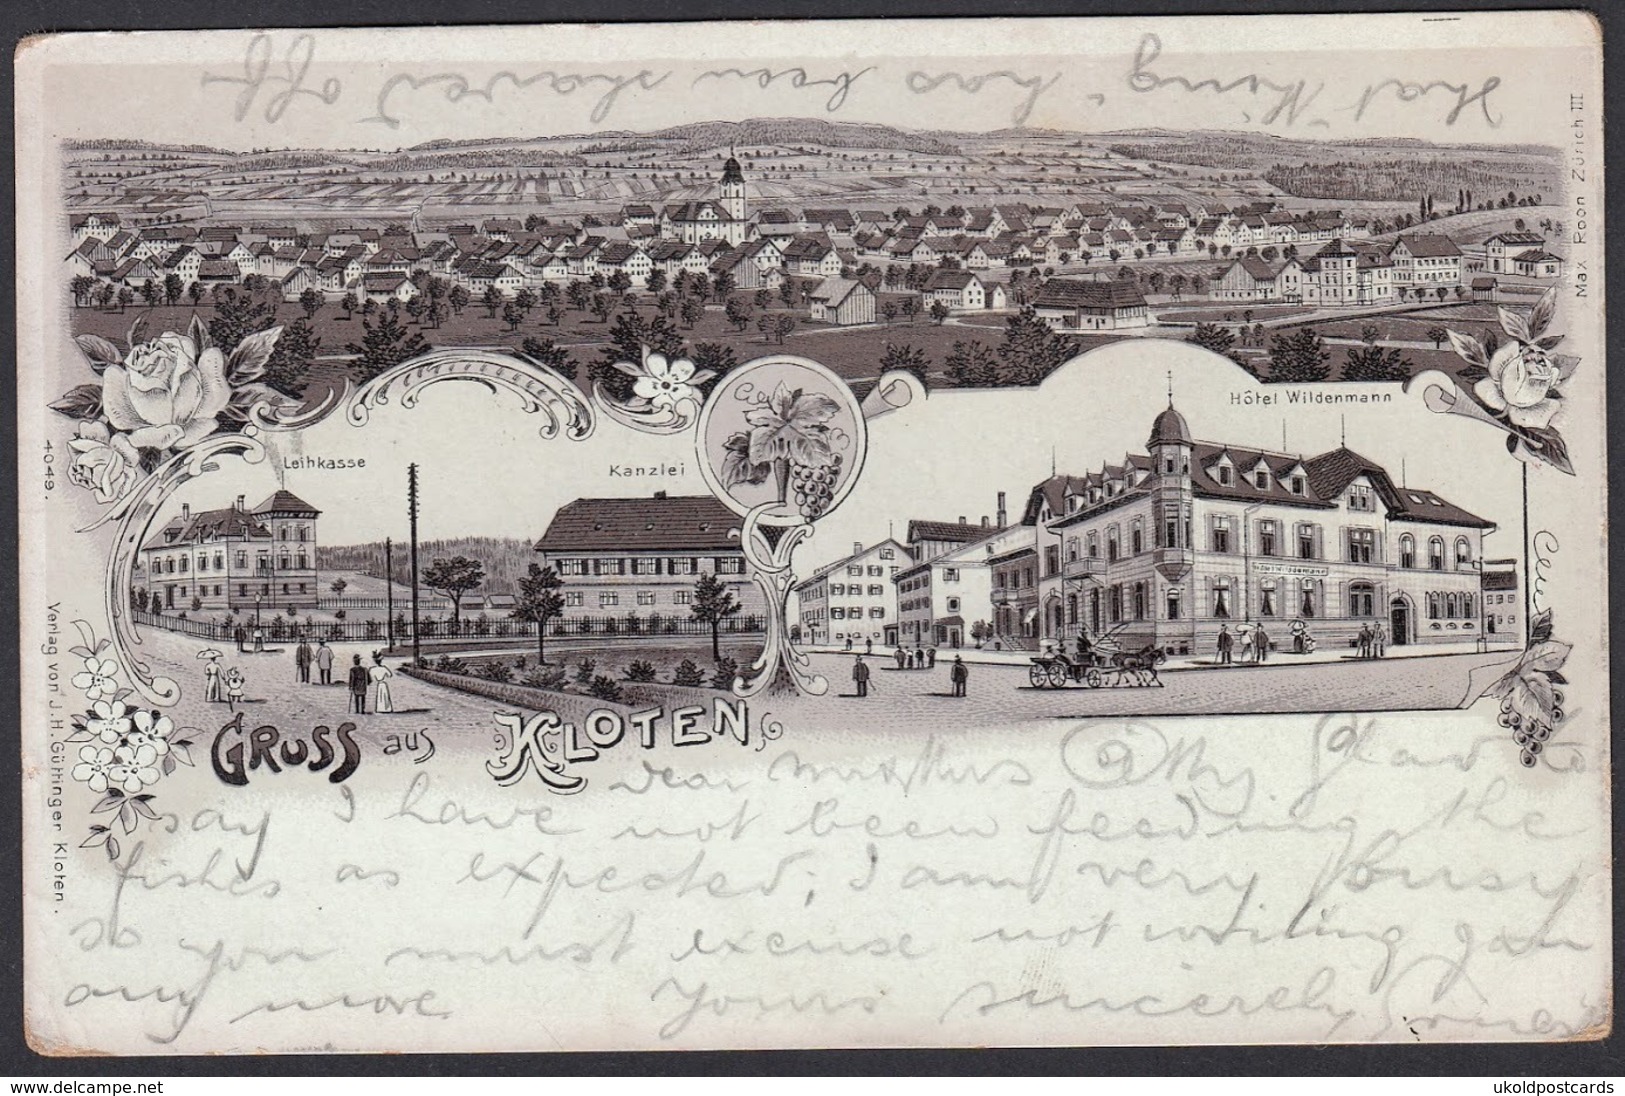 that "thing" has been shaved off
Max Roon Zürich III
Hôtel Wildenmann
Leihkasse
Kanzlei
Hôtel Wildenmann
4049.
Verlag von J.H. Güttinger Kloten.
GRUSS aus KLOTEN
dear
glad to
say I have not been feeding the
fishes as expected; I am very busy
so you must excuse not writing
any more. Yours sincerely
www.delcampe.net
ukoldpostcards